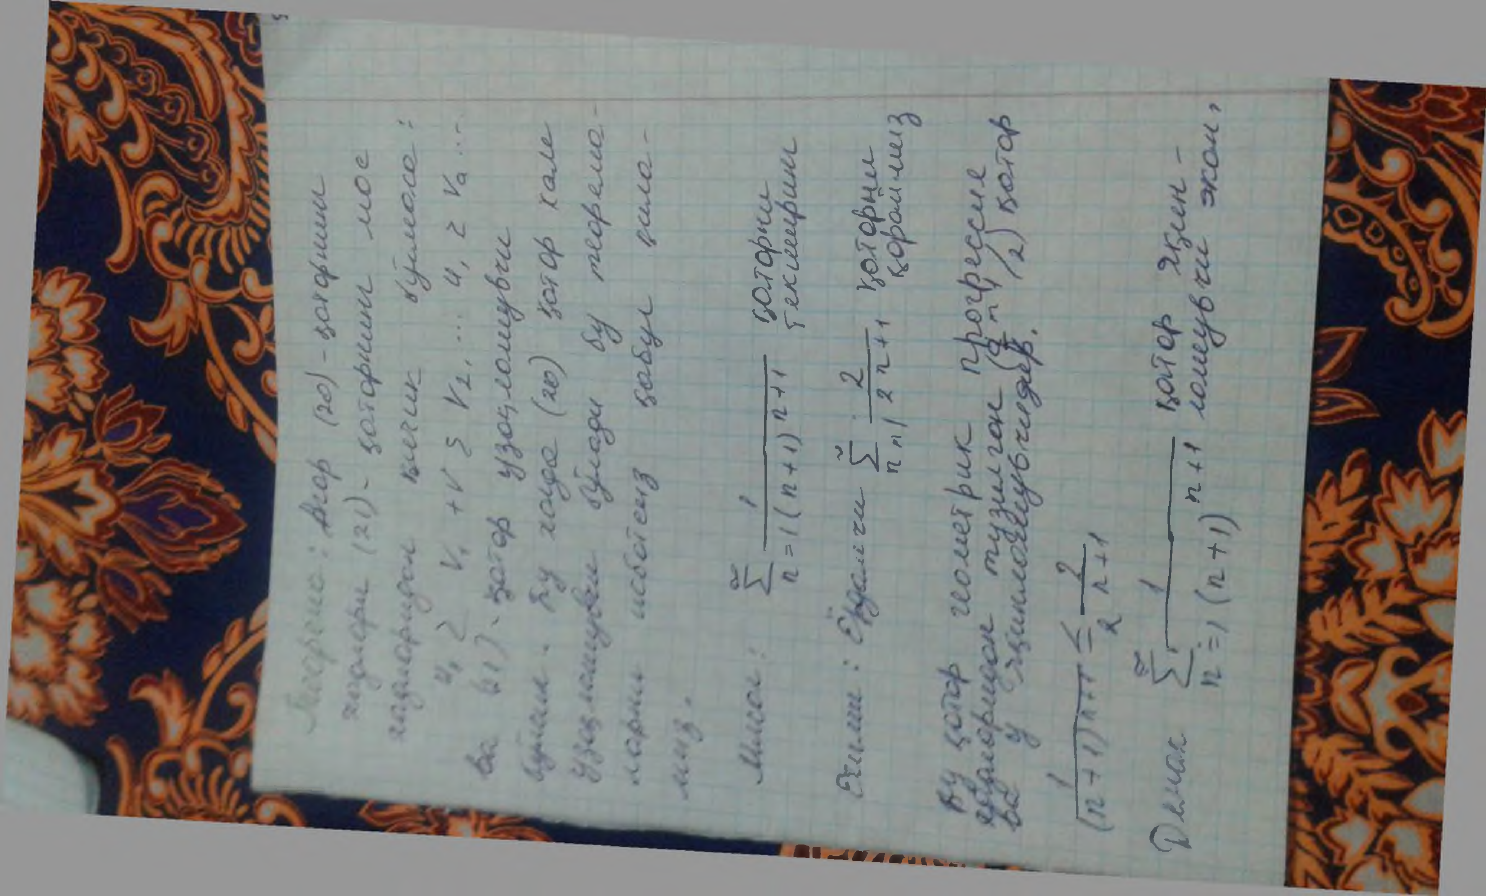 Агар (20)-қаторнинг
хадлари (21)- қаторнинг мос
хадларидан кичик бўлмаса:
u₁ ≥ V₁ + V ≥ V₂, ... u, ≥ Vₐ ...
ва 21)- қатор узоқлашувчи
бўлса. Бу холда (20) қатор хам
узоқлашувчи бўлади бу теорема-
ларни исботсиз қабул қила-
миз.
Мисол: ∑ n=1 1/(n+1)^n+1 қаторни
текширинг
Ечиш: Ёрдамчи ∑ n=1 2/2^n+1 қаторни
қараймиз
Бу қатор геометрик прогрессия
хадларидан тузилган 2) қатор
ва у яқинлашувчидир.
1/(n+1)^n+1 ≤ 2/2^n+1
Демак ∑ n=1 1/(n+1)^n+1 қатор яқин-
лашувчи экан,